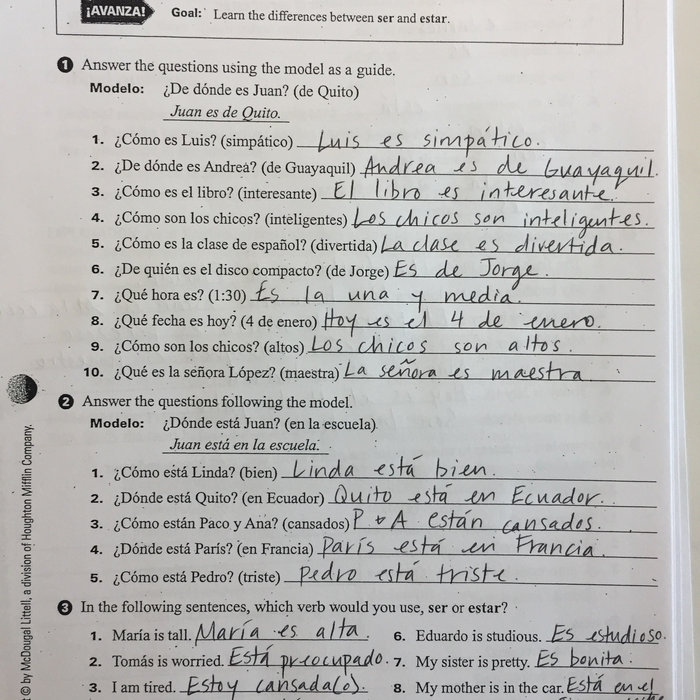 ¡AVANZA! Goal: Learn the differences between ser and estar.
1 Answer the questions using the model as a guide.
Modelo: ¿De dónde es Juan? (de Quito)
Juan es de Quito.
1. ¿Cómo es Luis? (simpático) Luis es simpático.
2. ¿De dónde es Andrea? (de Guayaquil) Andrea es de Guayaquil.
3. ¿Cómo es el libro? (interesante) El libro es interesante.
4. ¿Cómo son los chicos? (inteligentes) Los chicos son inteligentes.
5. ¿Cómo es la clase de español? (divertida) La clase es divertida.
6. ¿De quién es el disco compacto? (de Jorge) Es de Jorge.
7. ¿Qué hora es? (1:30) Es la una y media.
8. ¿Qué fecha es hoy? (4 de enero) Hoy es el 4 de enero.
9. ¿Cómo son los chicos? (altos) Los chicos son altos.
10. ¿Qué es la señora López? (maestra) La señora es maestra
2 Answer the questions following the model.
Modelo: ¿Dónde está Juan? (en la escuela)
Juan está en la escuela.
1. ¿Cómo está Linda? (bien) Linda está bien.
2. ¿Dónde está Quito? (en Ecuador) Quito está en Ecuador.
3. ¿Cómo están Paco y Ana? (cansados) P + A están cansados.
4. ¿Dónde está París? (en Francia) París está en Francia.
5. ¿Cómo está Pedro? (triste) Pedro está triste.
3 In the following sentences, which verb would you use, ser or estar?
1. María is tall. María es alta.
2. Tomás is worried. Está preocupado.
3. I am tired. Estoy cansada(o).
6. Eduardo is studious. Es estudioso.
7. My sister is pretty. Es bonita.
8. My mother is in the car. Está en el
© by McDougal Littell, a division of Houghton Mifflin Company.